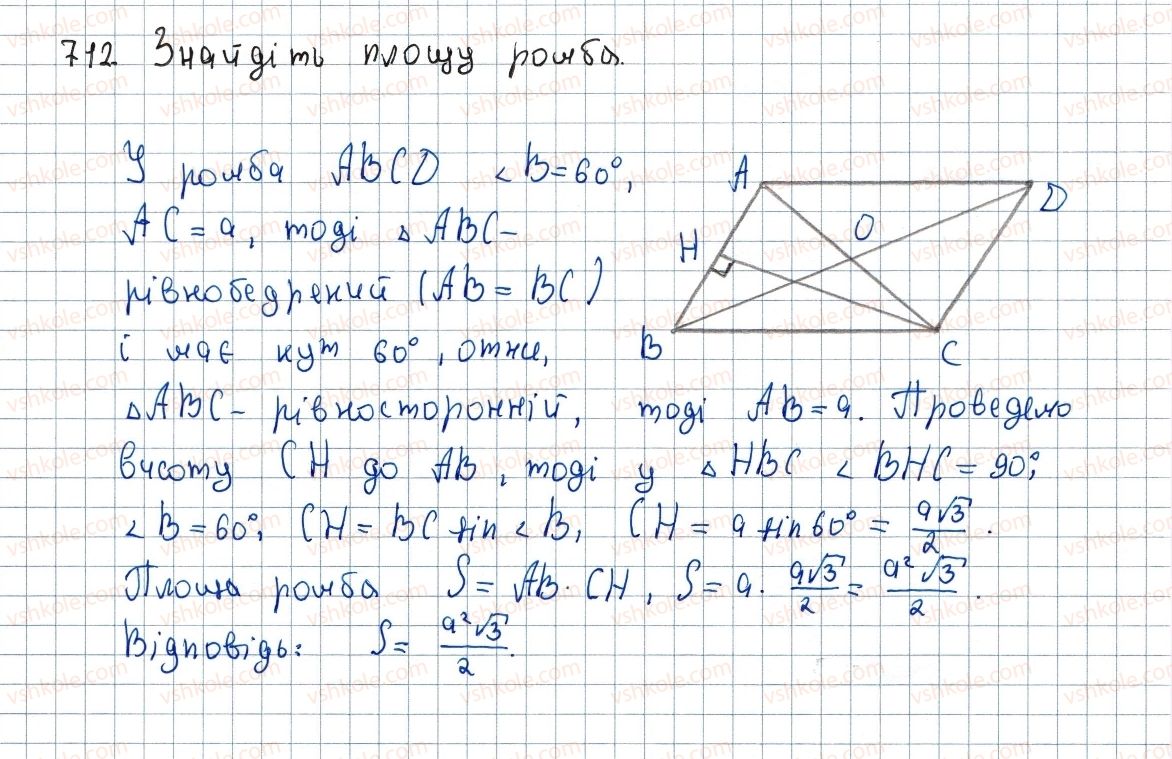 712 Знайдіть площу ромба.
У ромба ABCD <B=60°,
AC=a, тоді △ABC-
рівнобедрений (AB=BC)
і має кут 60°, отже,
△ABC- рівносторонній, тоді AB=a. Проведемо
висоту CH до AB, тоді у △HBC <BHC=90°;
<B=60°; CH=BC sin<B, CH= a sin60° = a√3/2.
Площа ромба S=AB·CH, S=a· a√3/2 = a²√3/2.
Відповідь: S= a²√3/2.
A
D
H
O
B
C
vshkole.com